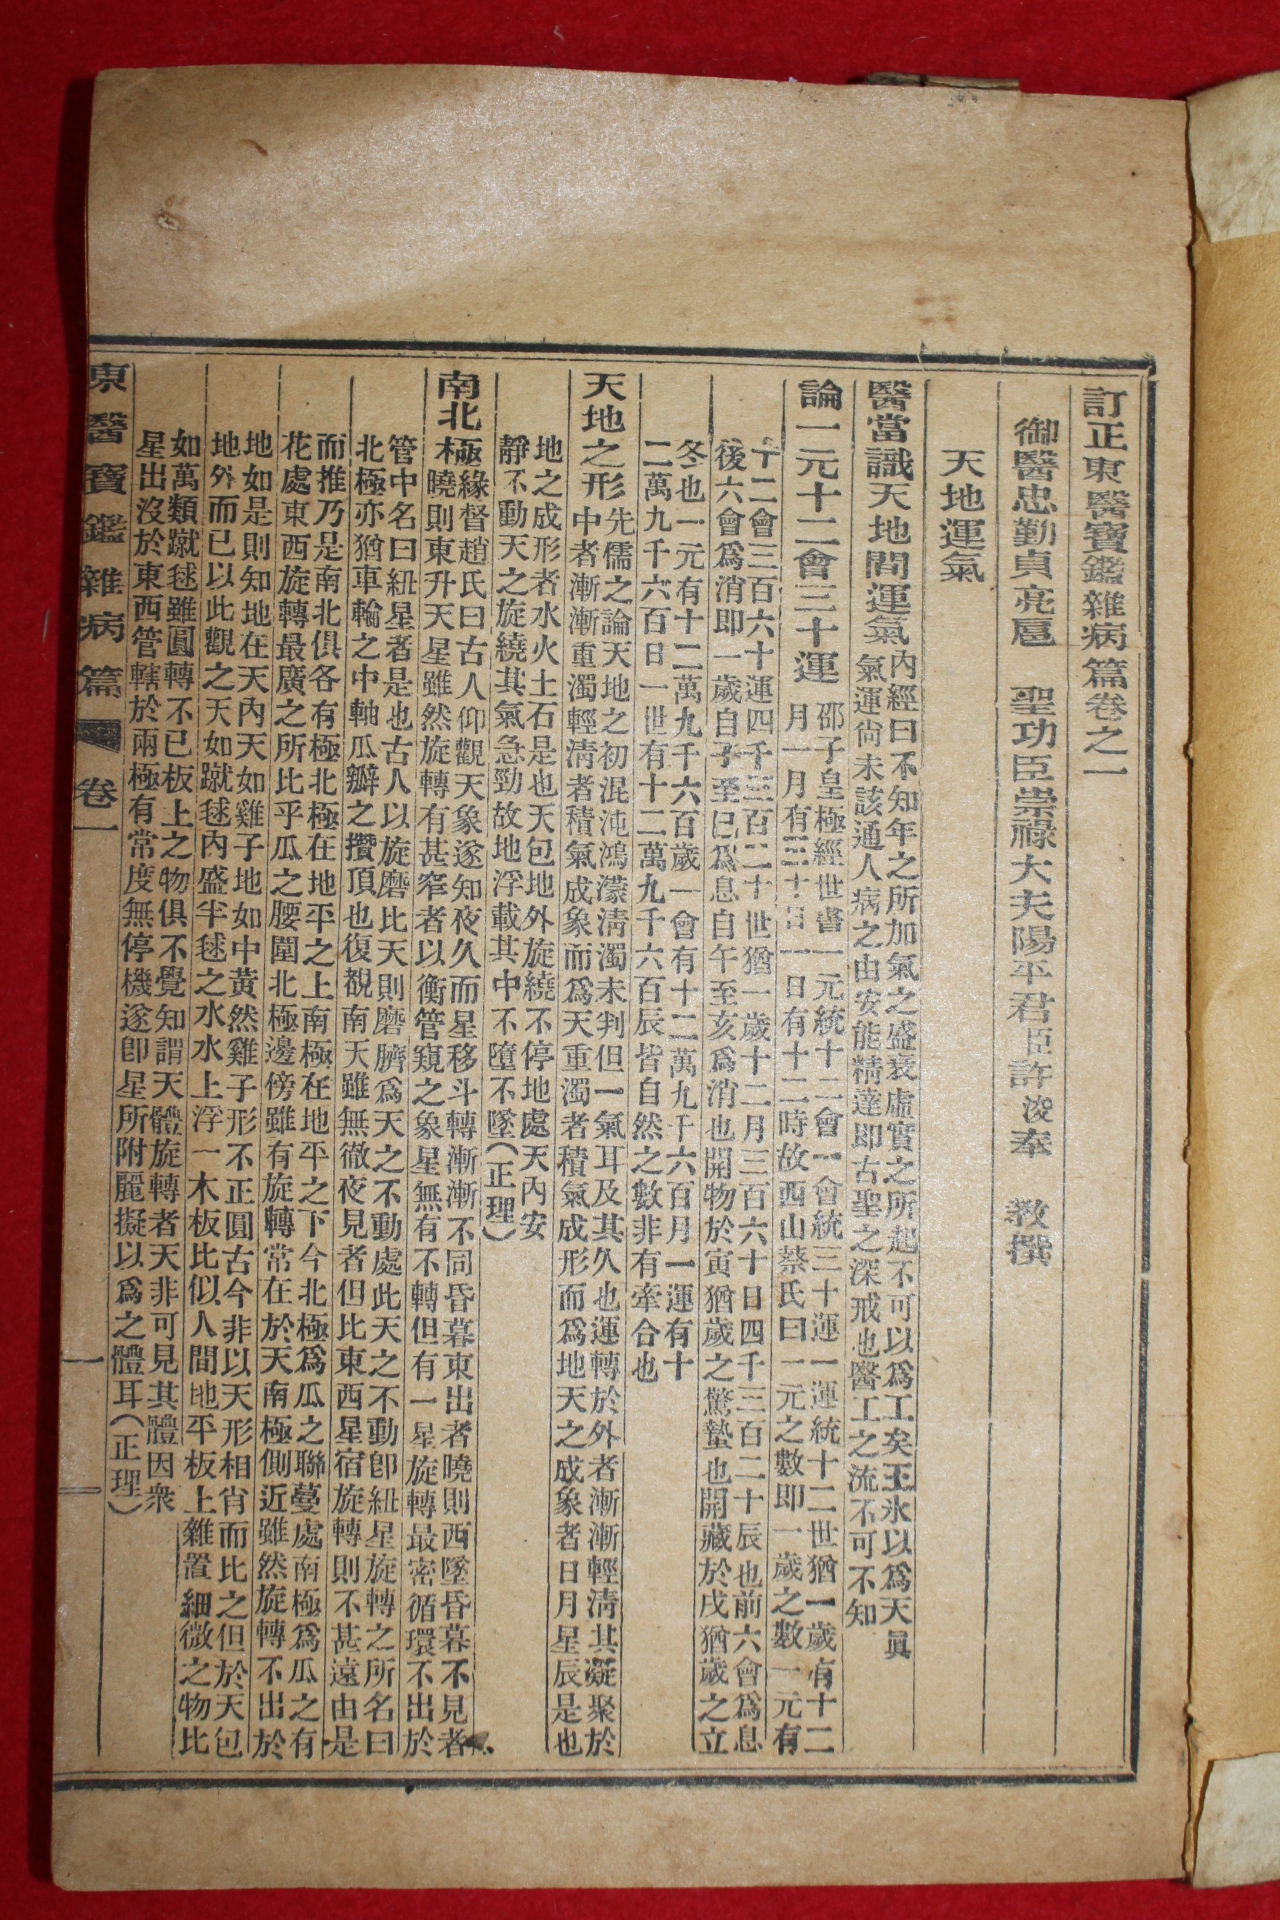 訂正東醫寶鑑雜病篇卷之一
御醫忠勤貞亮扈 聖功臣崇祿大夫陽平君臣許浚奉 教撰
天地運氣
醫當識天地間運氣
內經曰不知年之所加氣之盛衰虛實之所起不可以爲工矣王氷以爲天眞
氣運尙未該通人病之由安能精達即古聖之深戒也醫工之流不可不知
論一元十二會三十運
邵子皇極經世書一元統十二會一會統三十運一運統十二世猶一歲有十二
月一月有三十日一日有十二時故西山蔡氏曰一元之數即一歲之數一元有
十二會三百六十運四千三百二十世猶一歲十二月三百六十日四千三百二十辰也前六會爲息
後六會爲消即一歲自子至巳爲息自午至亥爲消也開物於寅猶歲之驚蟄也開藏於戌猶歲之立
冬也一元有十二萬九千六百歲一會有十二萬九千六百月一運有十
二萬九千六百日一世有十二萬九千六百辰皆自然之數非有牽合也
天地之形
先儒之論天地之初混沌鴻濛淸濁未判但一氣耳及其久也運轉於外者漸漸輕淸其凝聚於
中者漸漸重濁輕淸者積氣成象而爲天重濁者積氣成形而爲地天之成象者日月星辰是也
地之成形者水火土石是也天包地外旋繞不停地處天內安
靜不動天之旋繞其氣急勁故地浮載其中不墮不墜(正理)
南北極
緣督趙氏曰古人仰觀天象遂知夜久而星移斗轉漸漸不同昏暮東出者曉則西墜昏暮不見者
木曉則東升天星雖然旋轉有甚窄者以衡管窺之象星無有不轉但有一星旋轉最密循環不出於
管中名曰紐星者是也古人以旋磨比天則磨臍爲天之不動處此天之不動卽紐星旋轉之所名曰
北極亦猶車輪之中軸瓜瓣之攢頂也復覩南天雖無徹夜見者但比東西星宿旋轉則不甚遠由是
而推乃是南北俱各有極北極在地平之上南極在地平之下今北極爲瓜之聯蔓處南極爲瓜之有
花處東西旋轉最廣之所比乎瓜之腰圍北極邊傍雖有旋轉常在於天南極側近雖然旋轉不出於
地如是則知地在天內天如雞子地如中黃然雞子形不正圓古今非以天形相肖而比之但於天包
地外而已以此觀之天如蹴毬內盛半毬之水水上浮一木板比似人間地平板上雜置細微之物比
如萬類蹴毬雖圓轉不已板上之物俱不覺知謂天體旋轉者天非可見其體因衆
星出沒於東西管轄於兩極有常度無停機遂卽星所附麗擬以爲之體耳(正理)
東醫寶鑑雜病篇 卷一
一